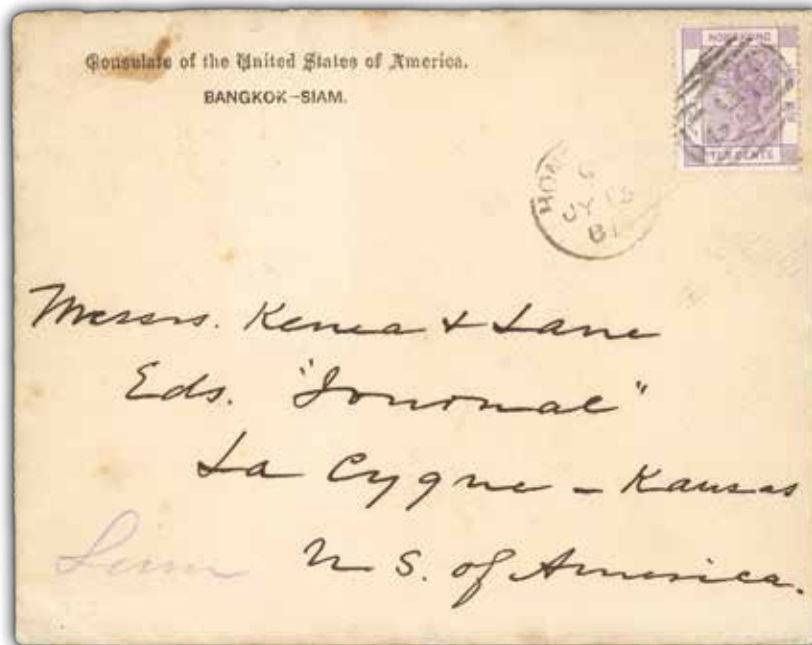 Consulate of the United States of America.
BANGKOK-SIAM.
HONG KONG
TEN CENTS
HONG
JY 
81
Messrs. Kenea & Lane
Eds. "Journal"
La Cygne - Kansas
U S. of America.